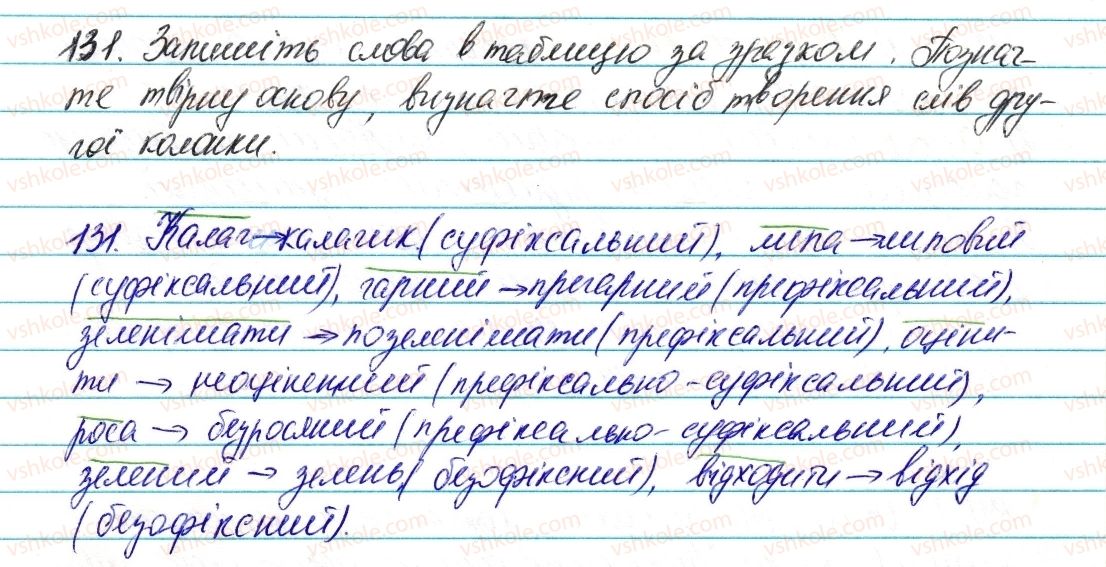 131. Запишіть слова в таблицю за зразком. Познач-
те твірну основу, визначте спосіб творення слів дру-
гої колонки.
131. Калач→калачик (суфіксальний), липа→липовий
(суфіксальний), гарний→прегарний (префіксальний),
зеленішати→позеленішати (префіксальний), оціни-
ти → неоціненний (префіксально-суфіксальний),
роса → безросяний (префіксально-суфіксальний),
зелений → зелень (безафіксний), відходити→відхід
(безафіксний).